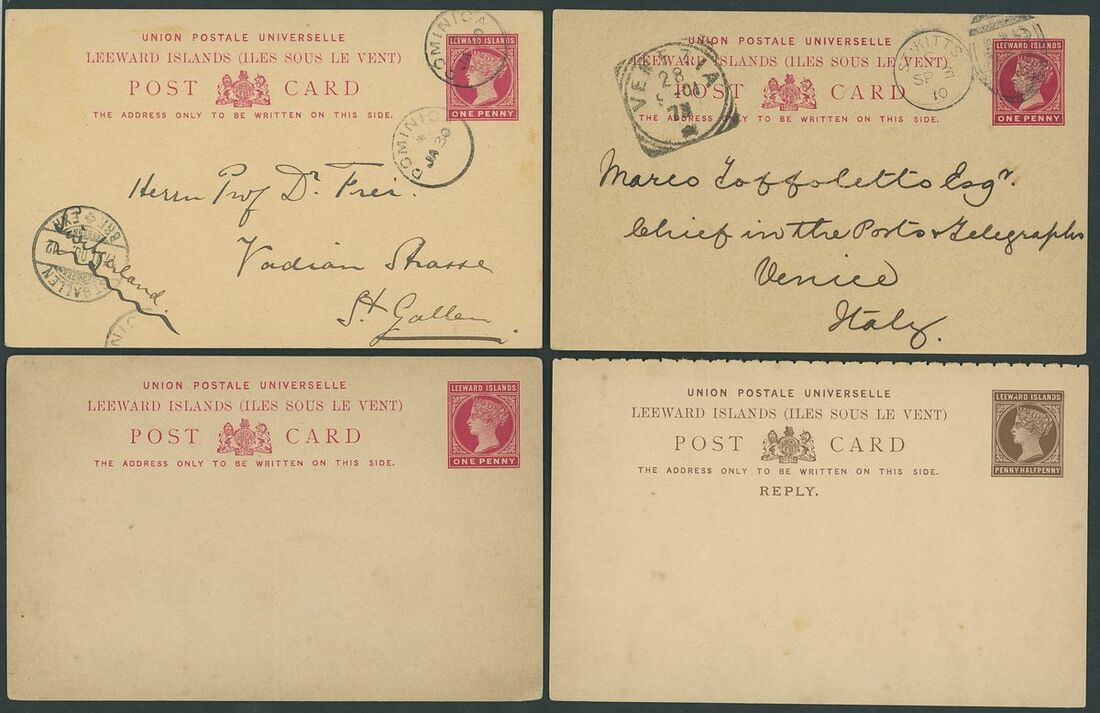 UNION POSTALE UNIVERSELLE
LEEWARD ISLANDS (ILES SOUS LE VENT)
POST CARD
THE ADDRESS ONLY TO BE WRITTEN ON THIS SIDE.
LEEWARD ISLANDS
ONE PENNY
DOMINICA
DOMINICA
JA 30
Herrn Prof Dr. Frei.
Vadian Strasse
St Gallen.
UNION POSTALE UNIVERSELLE
LEEWARD ISLANDS (ILES SOUS LE VENT)
POST CARD
THE ADDRESS ONLY TO BE WRITTEN ON THIS SIDE.
LEEWARD ISLANDS
ONE PENNY
VENEZIA
28
ST. KITTS
SP
10
Marco Toffoletto Esqr.
Chief in the Posts & Telegraphs
Venice
Italy.
UNION POSTALE UNIVERSELLE
LEEWARD ISLANDS (ILES SOUS LE VENT)
POST CARD
THE ADDRESS ONLY TO BE WRITTEN ON THIS SIDE.
LEEWARD ISLANDS
ONE PENNY
UNION POSTALE UNIVERSELLE
LEEWARD ISLANDS (ILES SOUS LE VENT)
POST CARD
THE ADDRESS ONLY TO BE WRITTEN ON THIS SIDE.
REPLY.
LEEWARD ISLANDS
PENNY HALFPENNY